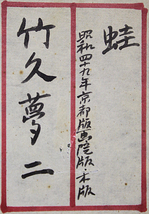 蛙
昭和四十九年京都版画院版・木版
竹久夢二